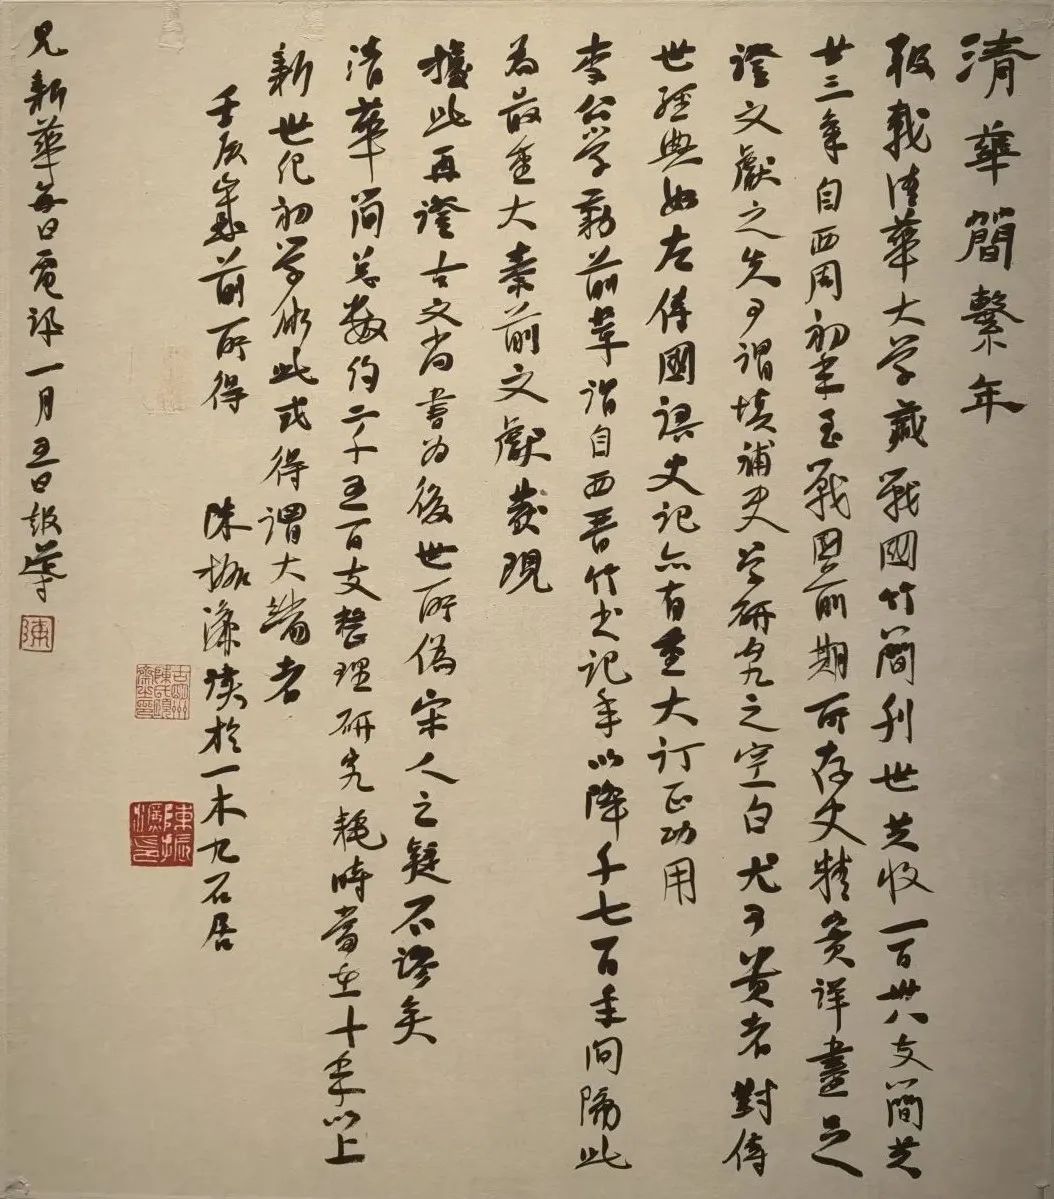 清華簡繫年
報載清華大学藏戰國竹簡刊世共收一百卅八支簡共
廿三章自西周初年至戰國前期所存史料資詳盡足
證文獻之失可謂填補史学研究之空白尤可貴者對傳
世經典如左傳國語史記亦有重大訂正功用
李公学勤前辈謂自西晋竹书记年以降千七百年间隔此
為最重大秦前文獻發現
據此再證古文尚書为後世所偽宋人之疑不謬矣
清華简总數約二千五百支整理研究耗時當在十年以上
新世纪初学術此或得謂大端者
壬辰歲前所得 陳振濂读於一木九石居
兄新華每日電訊一月五日報導
陳
陳振濂印